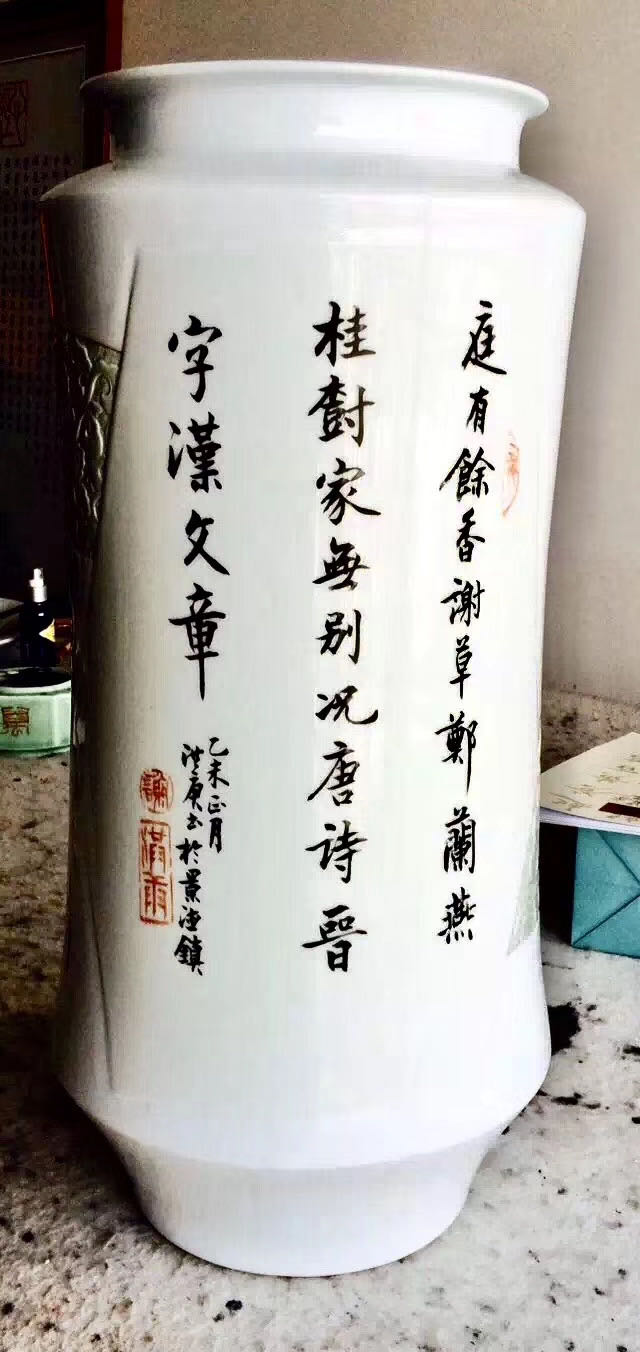 庭有餘香謝草鄭蘭燕
桂樹家無別况唐詩晉
字漢文章
乙未正月
洪庚书於景德鎮